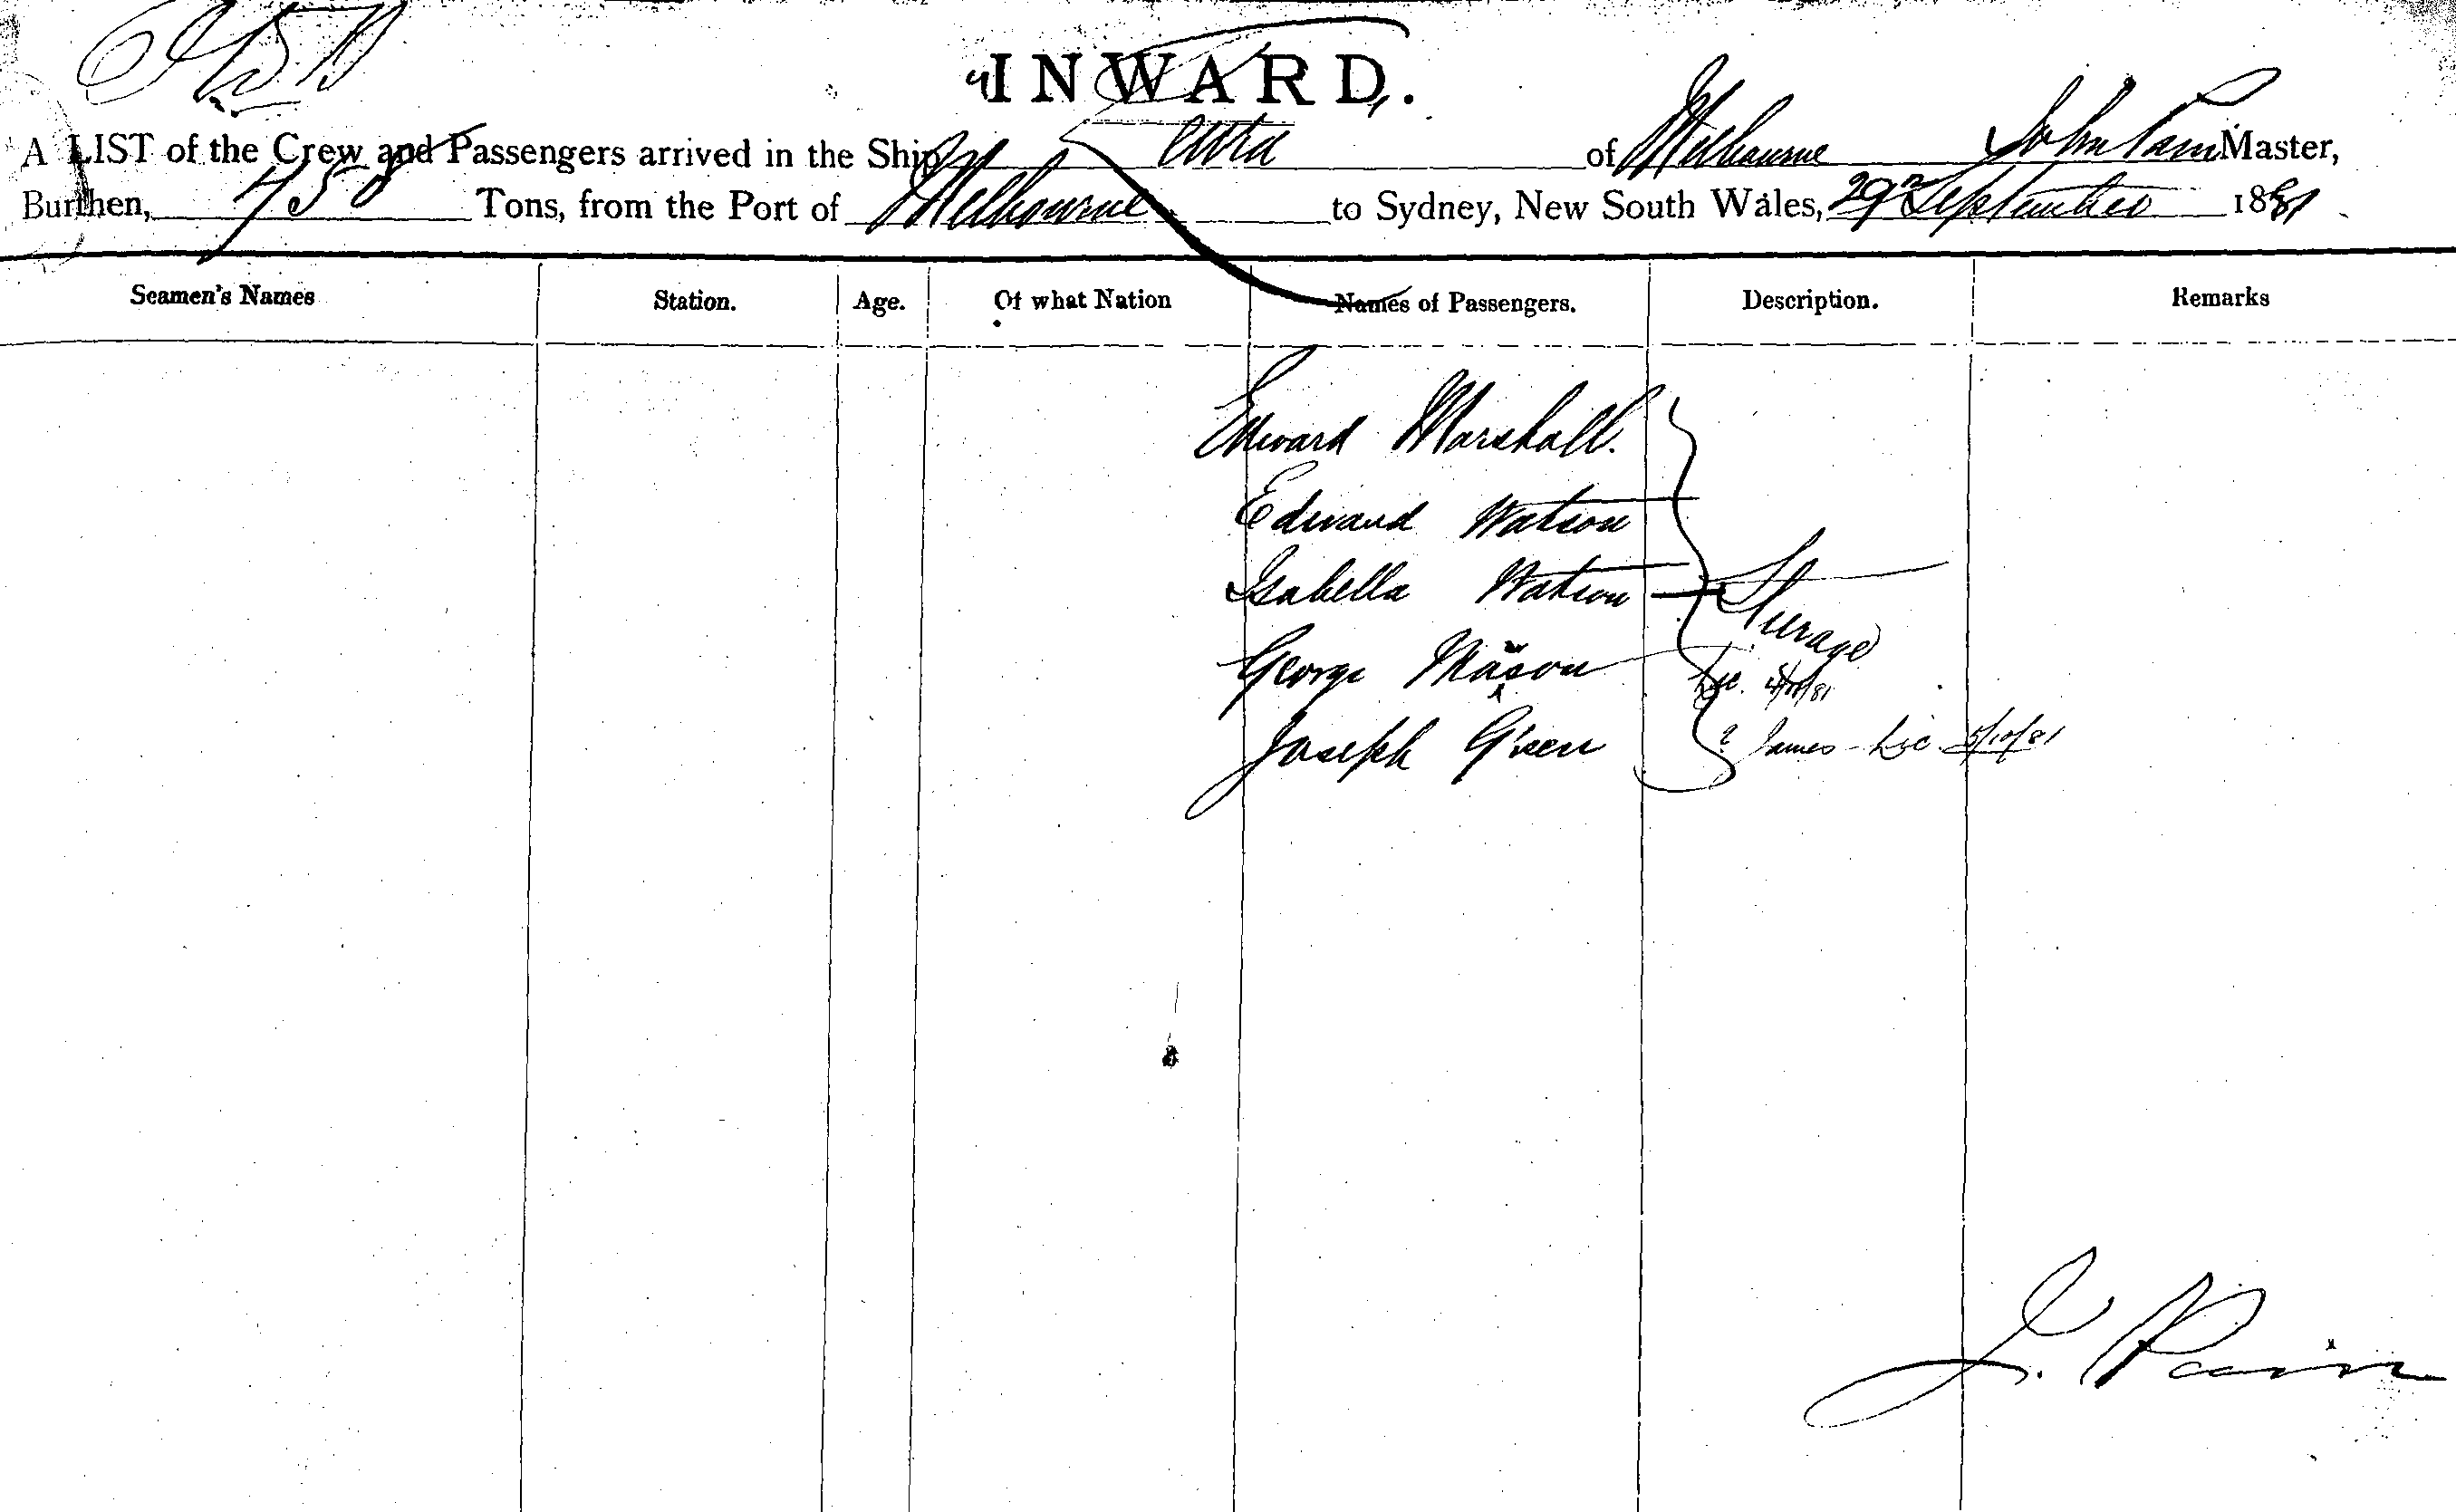 INWARD.
A LIST of the Crew and Passengers arrived in the Ship of Melbourne John Pain Master,
Burthen, 458 Tons, from the Port of Melbourne to Sydney, New South Wales, 29th September 1881
Seamen's Names Station. Age. Of what Nation Names of Passengers. Description. Remarks
Edward Marshall.
Edward Watson
Isabella Watson
Steerage
George Mason
Joseph Green ? James - Lic 5/10/81
J. Pain